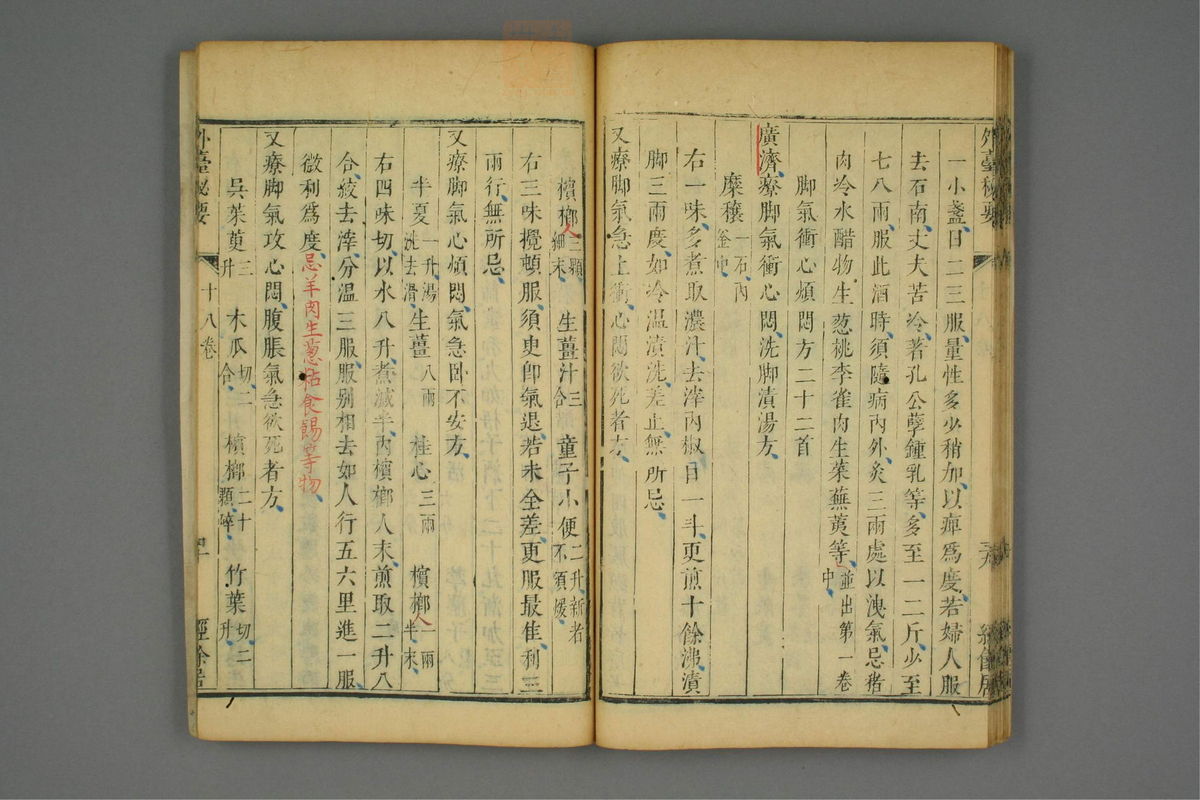 外臺秘要
一小盞日二三服量性多少稍加以痺爲度若婦人服
去石南丈夫苦冷著孔公孽鍾乳等多至一二斤少至
七八兩服此酒時須隨病內外灸三兩處以洩氣忌猪
肉冷水醋物生葱桃李雀肉生菜蕪荑等並出第一卷中
脚氣衝心煩悶方二十二首
廣濟療脚氣衝心悶洗脚漬湯方
糜穰一石內釜中
右一味多煮取濃汁去滓內椒目一斗更煎十餘沸漬
脚三兩度如冷温漬洗羌止無所忌
又療脚氣急上衝心悶欲死者方
檳榔人三顆細末 生薑汁三合 童子小便二升新者不須煖
右三味攪頓服須臾卽氣退若未全差更服最佳利三
兩行無所忌
又療脚氣心煩悶氣急卧不安方
半夏一升湯洗去滑 生薑八兩 桂心三兩 檳榔人一兩半末
右四味切以水八升煮減半內檳榔人末煎取二升八
合絞去滓分温三服服别相去如人行五六里進一服
微利爲度忌羊肉生葱粘食餳等物
又療脚氣攻心悶腹脹氣急欲死者方
吳茱萸三升 木瓜切二合 檳榔二十顆碎 竹葉切二升
外臺秘要 十八卷 經餘居